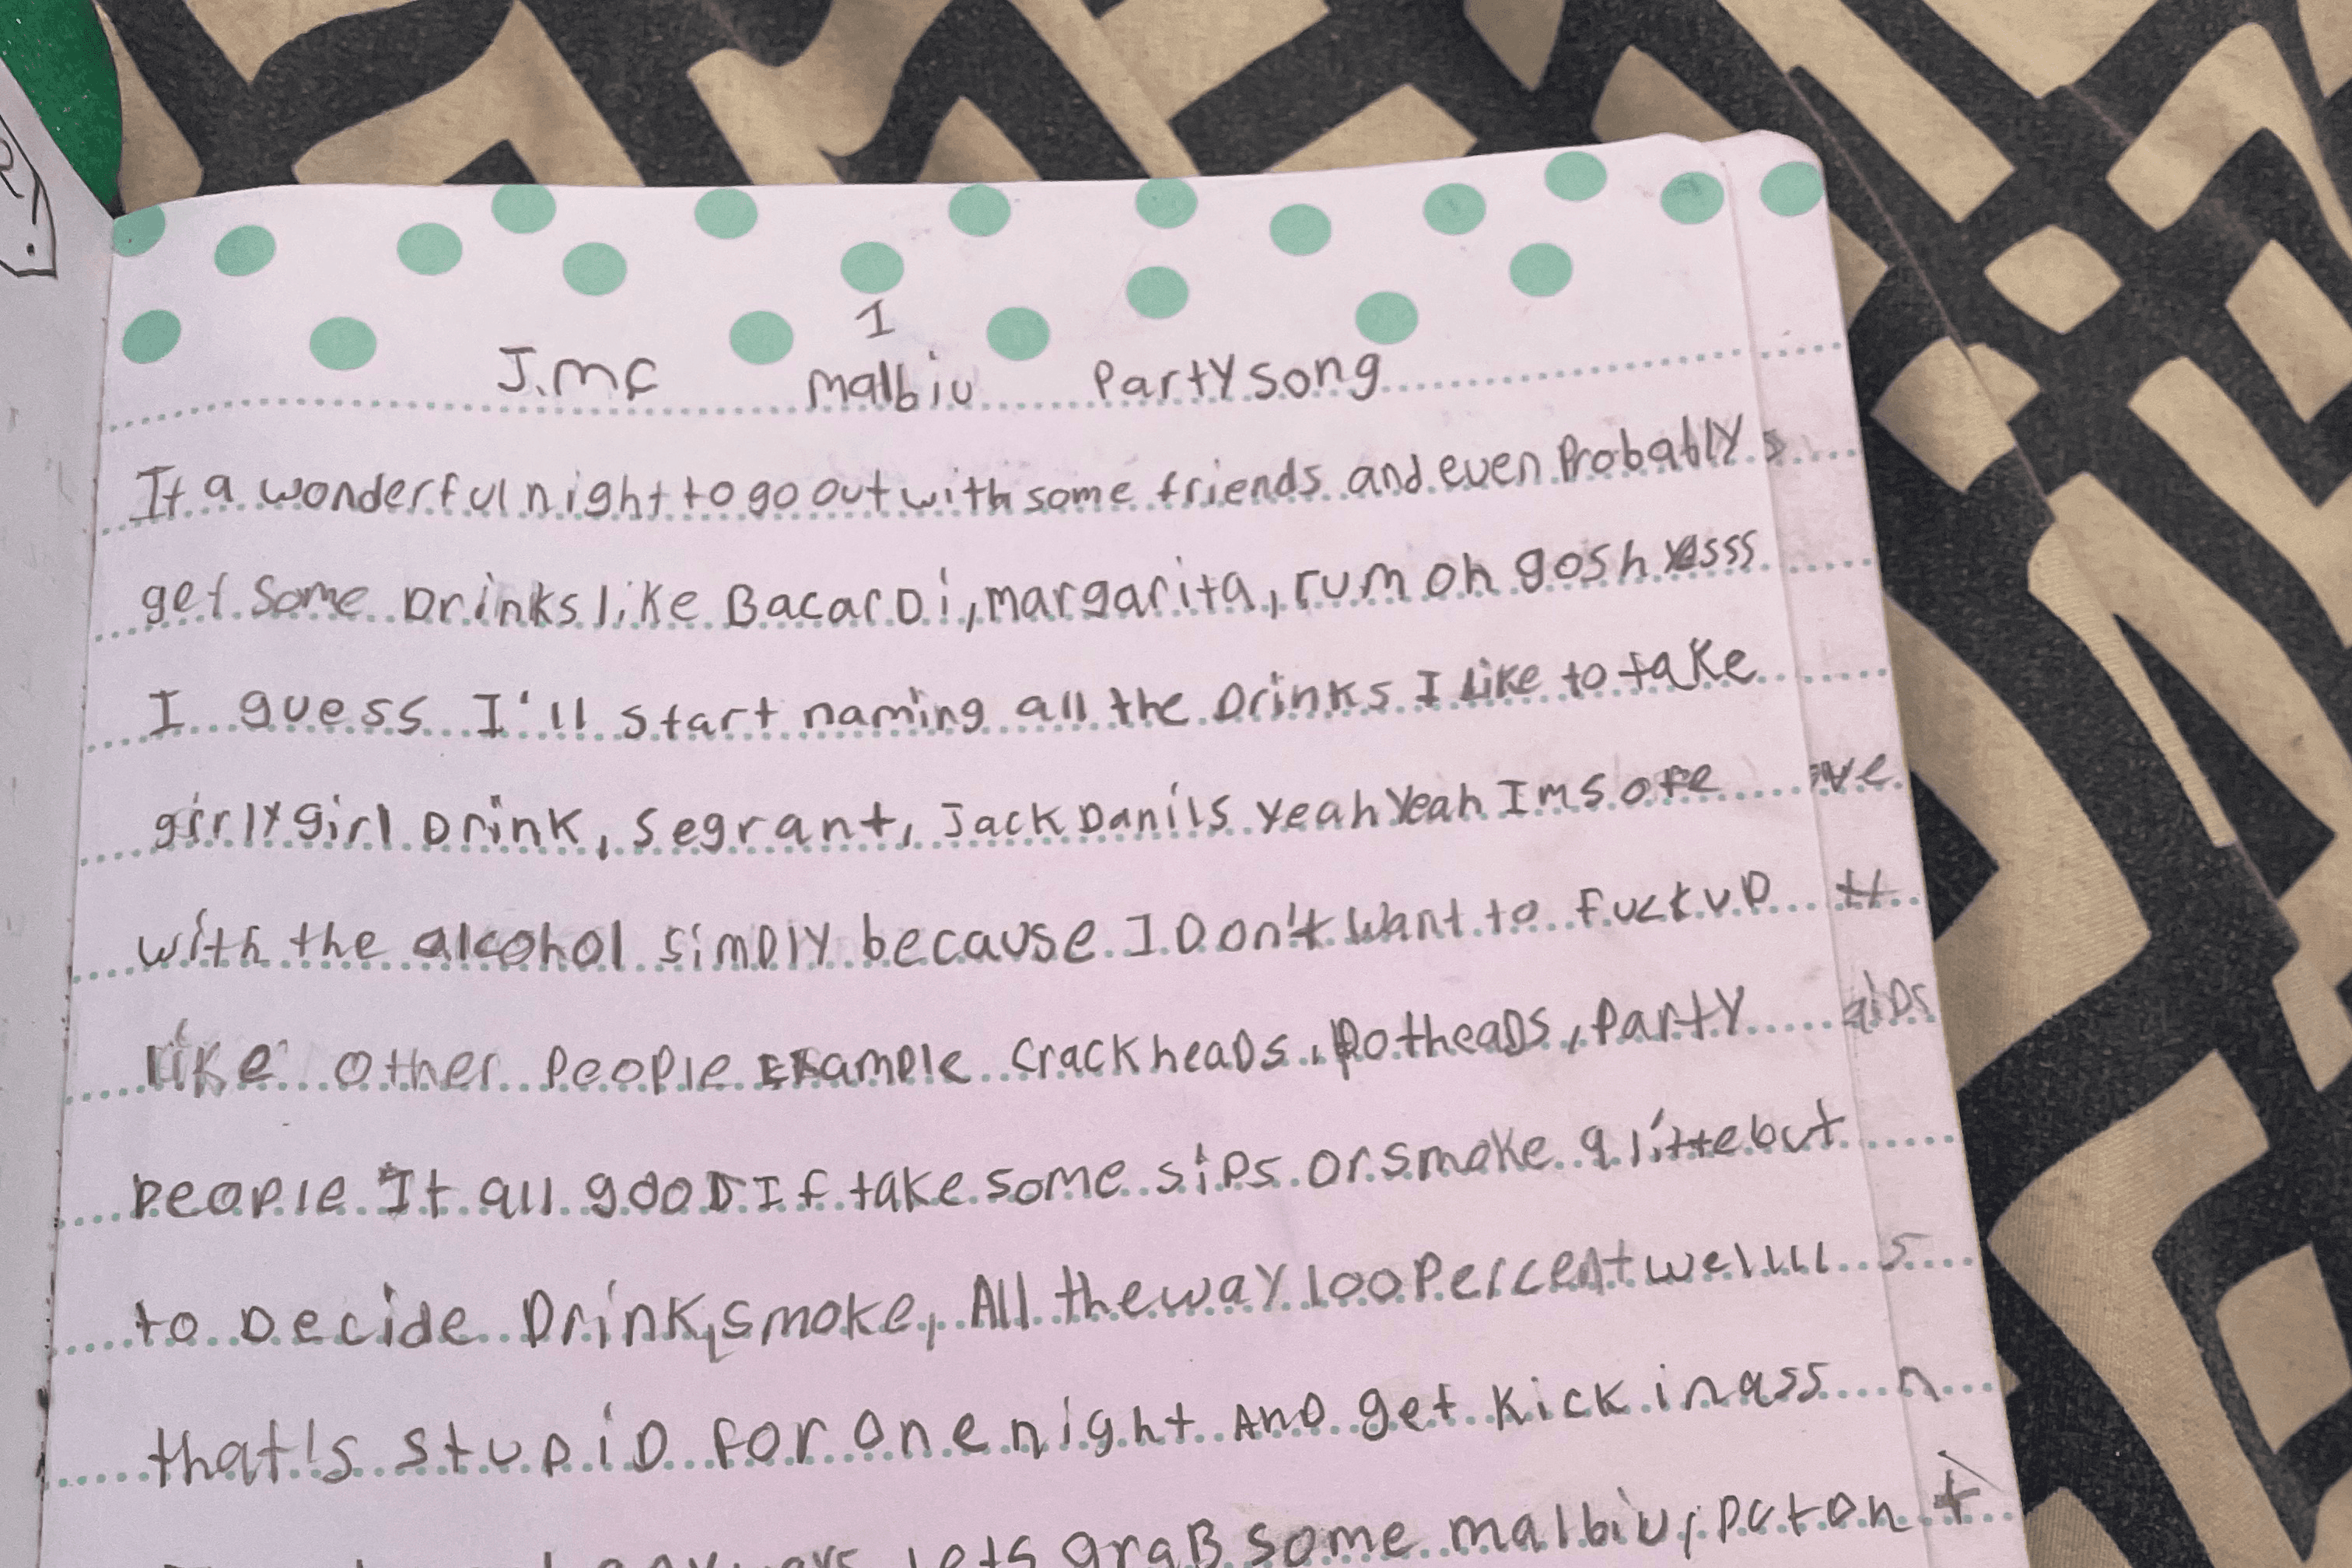 1
J.mc Malbiu Party song
It a wonderful night to go out with some friends and even Probably
get some Drinks like BacarDi, margarita, rum oh gosh yesss
I guess I'll start naming all the Drinks I like to take
girly girl Drink, segrant, Jack Danils yeah yeah Im sore
with the alcohol simply because I Don't want to fuck up
like other people Example crackheaDs, PotheaDs, Party
people It all gooD If take some sips or smoke a litte but
to Decide Drink, smoke, All the way 100 Percent welllll
that's stupiD for one night AnD get kick in ass
lets graB some malbiu, put on